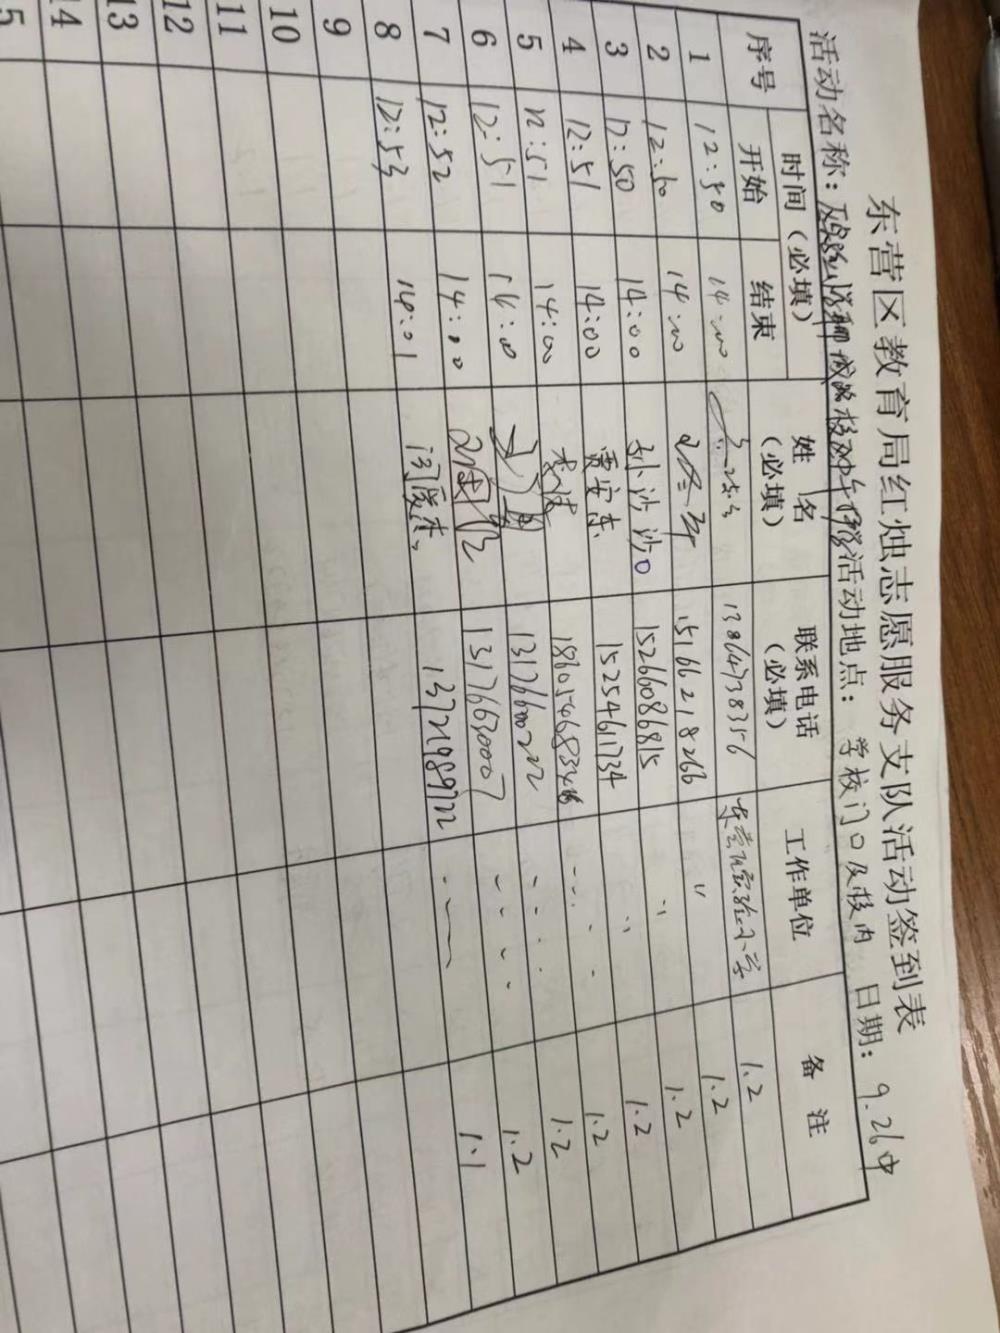 东营区教育局红烛志愿服务支队活动签到表
活动名称： 活动地点： 学校门口及校内 日期： 9.26中
序号 时间（必填） 姓名（必填） 联系电话（必填） 工作单位 备注
开始 结束
1 12:50 14:00 13864738356 东营区实验小学 1.2
2 12:50 14:00 15166218266 〃 1.2
3 12:50 14:00 孙沙沙 15266086815 〃 1.2
4 12:51 14:00 贾安东 15254611734 1.2
5 12:51 14:00 1.2
6 12:51 14:00 13176600222 1.2
7 12:52 14:00 13176630007 1.2
8 12:53 14:01 闫爱杰 13721989722 1.1
9
10
11
12
13
14
5